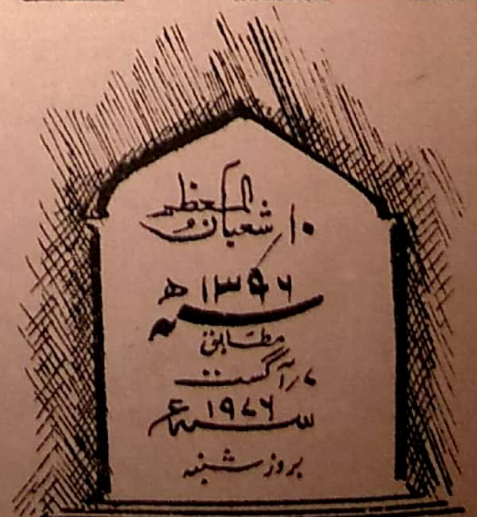 ۱۰ شعبان المعظم
۱۳۹۶ ھ
مطابق
۷ راگست
۱۹۷۶ ء
بروز شنبہ